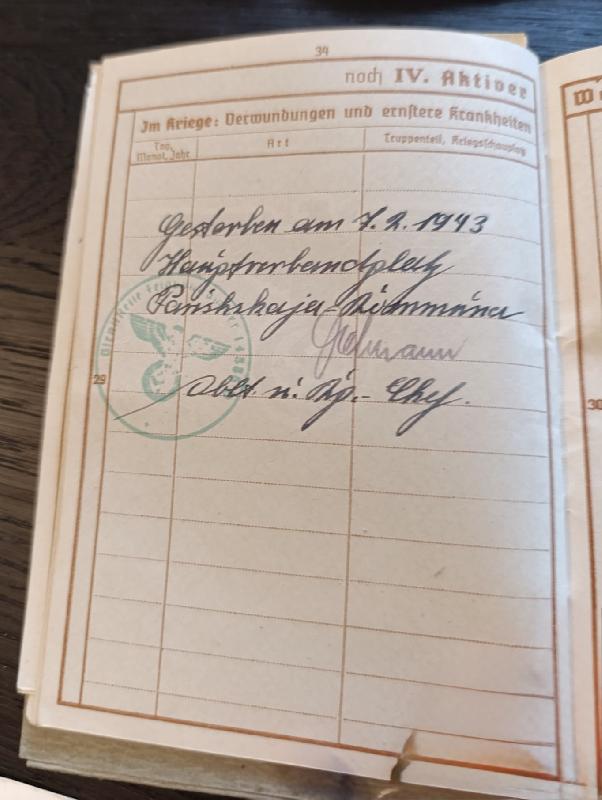 34
noch IV. Aktiver
Im Kriege: Verwundungen und ernstere Krankheiten
Tag, Monat, Jahr
Art
Truppenteil, Kriegsschauplatz
Gestorben am 7.2.1943
Hauptverbandplatz
Parishskaja-Kommuna
29
Oblt. u. Kp.- Chef.
Dienststelle Feldpost
W
30